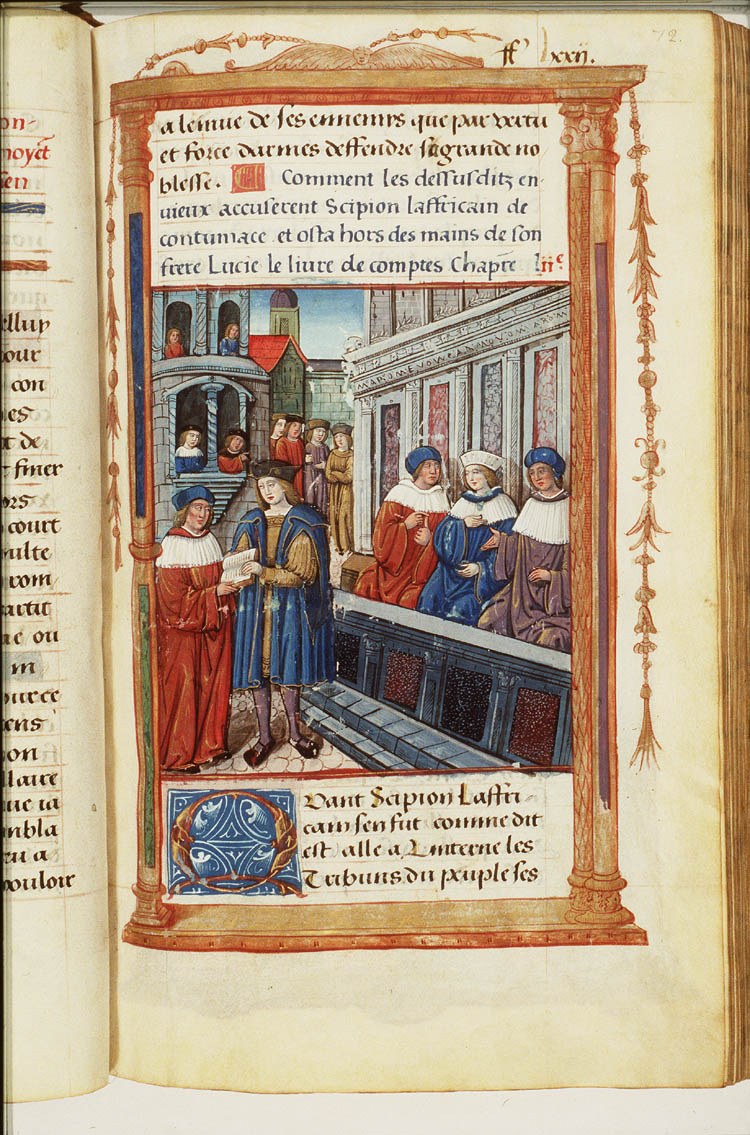 ff lxxii.
72.
a lenuie de ses ennemys que par vertu
et force darmes deffendre sa grande no
blesse. Comment les dessusditz en-
uieux accuserent Scipion laffricain de
contumace et osta hors des mains de son
frere Lucie le liure de comptes Chapre liie
Quant Scipion laffri-
cain sen fut comme dit
est alle a Linterne les
Tribuns du peuple ses
on-
sen
ellup
our
con
es
t de
finer
ors
court
rom
ne ou
m
ource
ens
on
llaire
ue ia
mbla
eu a
pouloir